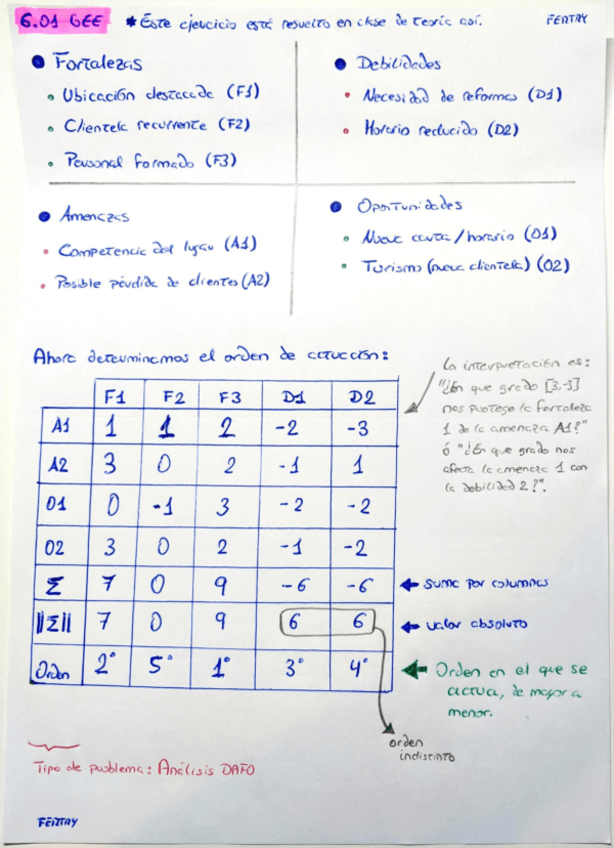 6.01 GEE * Este ejercicio está resuelto en clase de teoría así. FERTRY
Fortalezas
• Ubicación destacada (F1)
• Clientela recurrente (F2)
• Personal formado (F3)
Debilidades
• Necesidad de reformas (D1)
• Horario reducido (D2)
Amenazas
• Competencia del lugar (A1)
• Posible pérdida de clientes (A2)
Oportunidades
• Nueva carta/horario (O1)
• Turismo (nueva clientela) (O2)
Ahora determinamos el orden de actuación:
F1 F2 F3 D1 D2
A1 1 1 2 -2 -3
A2 3 0 2 -1 1
O1 0 -1 3 -2 -2
O2 3 0 2 -1 -2
Σ 7 0 9 -6 -6 ← suma por columnas
||Σ|| 7 0 9 6 6 ← valor absoluto
Orden 2° 5° 1° 3° 4° ← Orden en el que se
actua, de mayor a
menor.
La interpretación es:
"¿En que grado [3,-3]
nos protege la fortaleza
1 de la amenaza A1?"
ó "¿En que grado nos
afecta la amenaza 1 con
la debilidad 2?".
orden
indistinto
Tipo de problema: Análisis DAFO
FERTRY